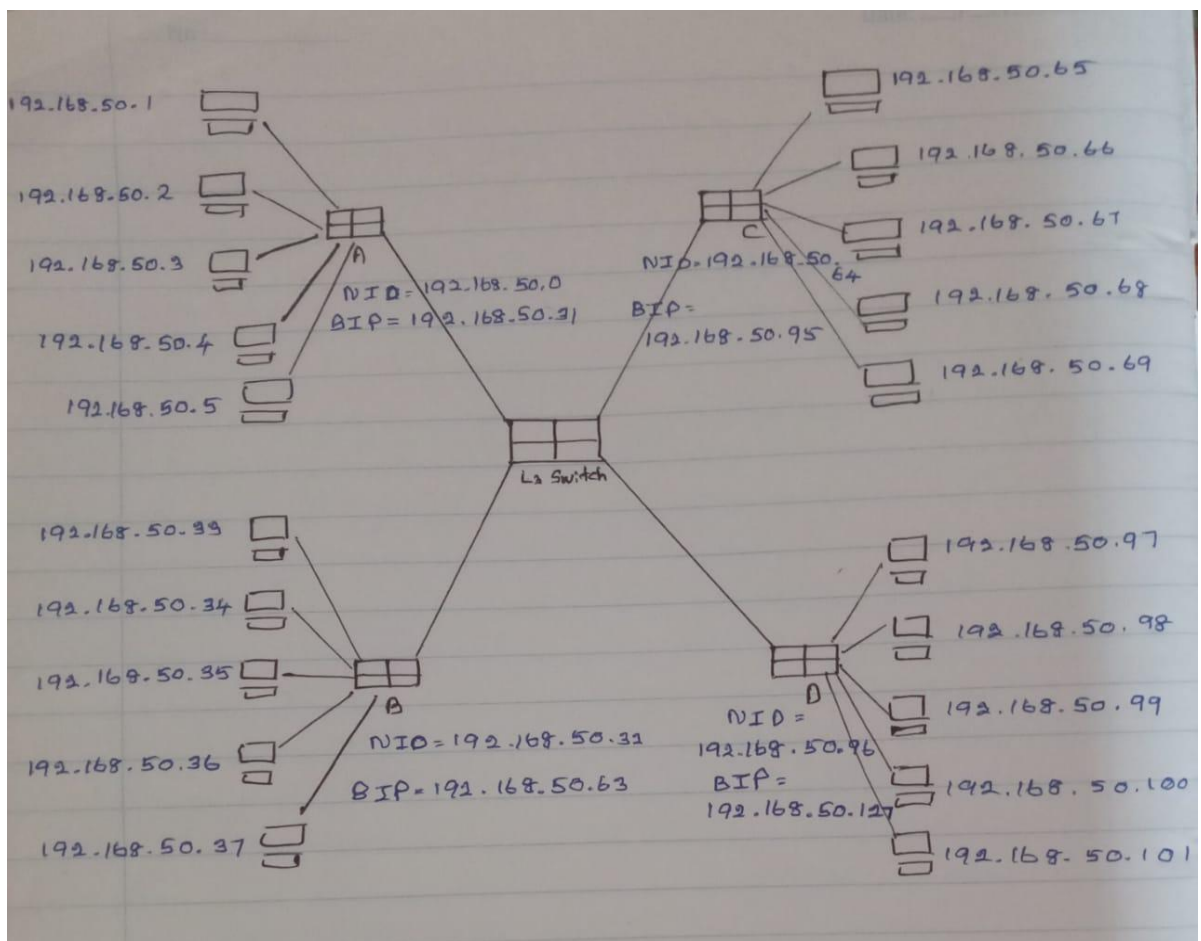 192.168.50.1
192.168.50.2
192.168.50.3
192.168.50.4
192.168.50.5
A
NID = 192.168.50.0
BIP = 192.168.50.31
192.168.50.65
192.168.50.66
192.168.50.67
192.168.50.68
192.168.50.69
C
NID = 192.168.50.
64
BIP =
192.168.50.95
L3 Switch
192.168.50.33
192.168.50.34
192.168.50.35
192.168.50.36
192.168.50.37
B
NID = 192.168.50.32
BIP = 192.168.50.63
192.168.50.97
192.168.50.98
192.168.50.99
192.168.50.100
192.168.50.101
D
NID =
192.168.50.96
BIP =
192.168.50.127